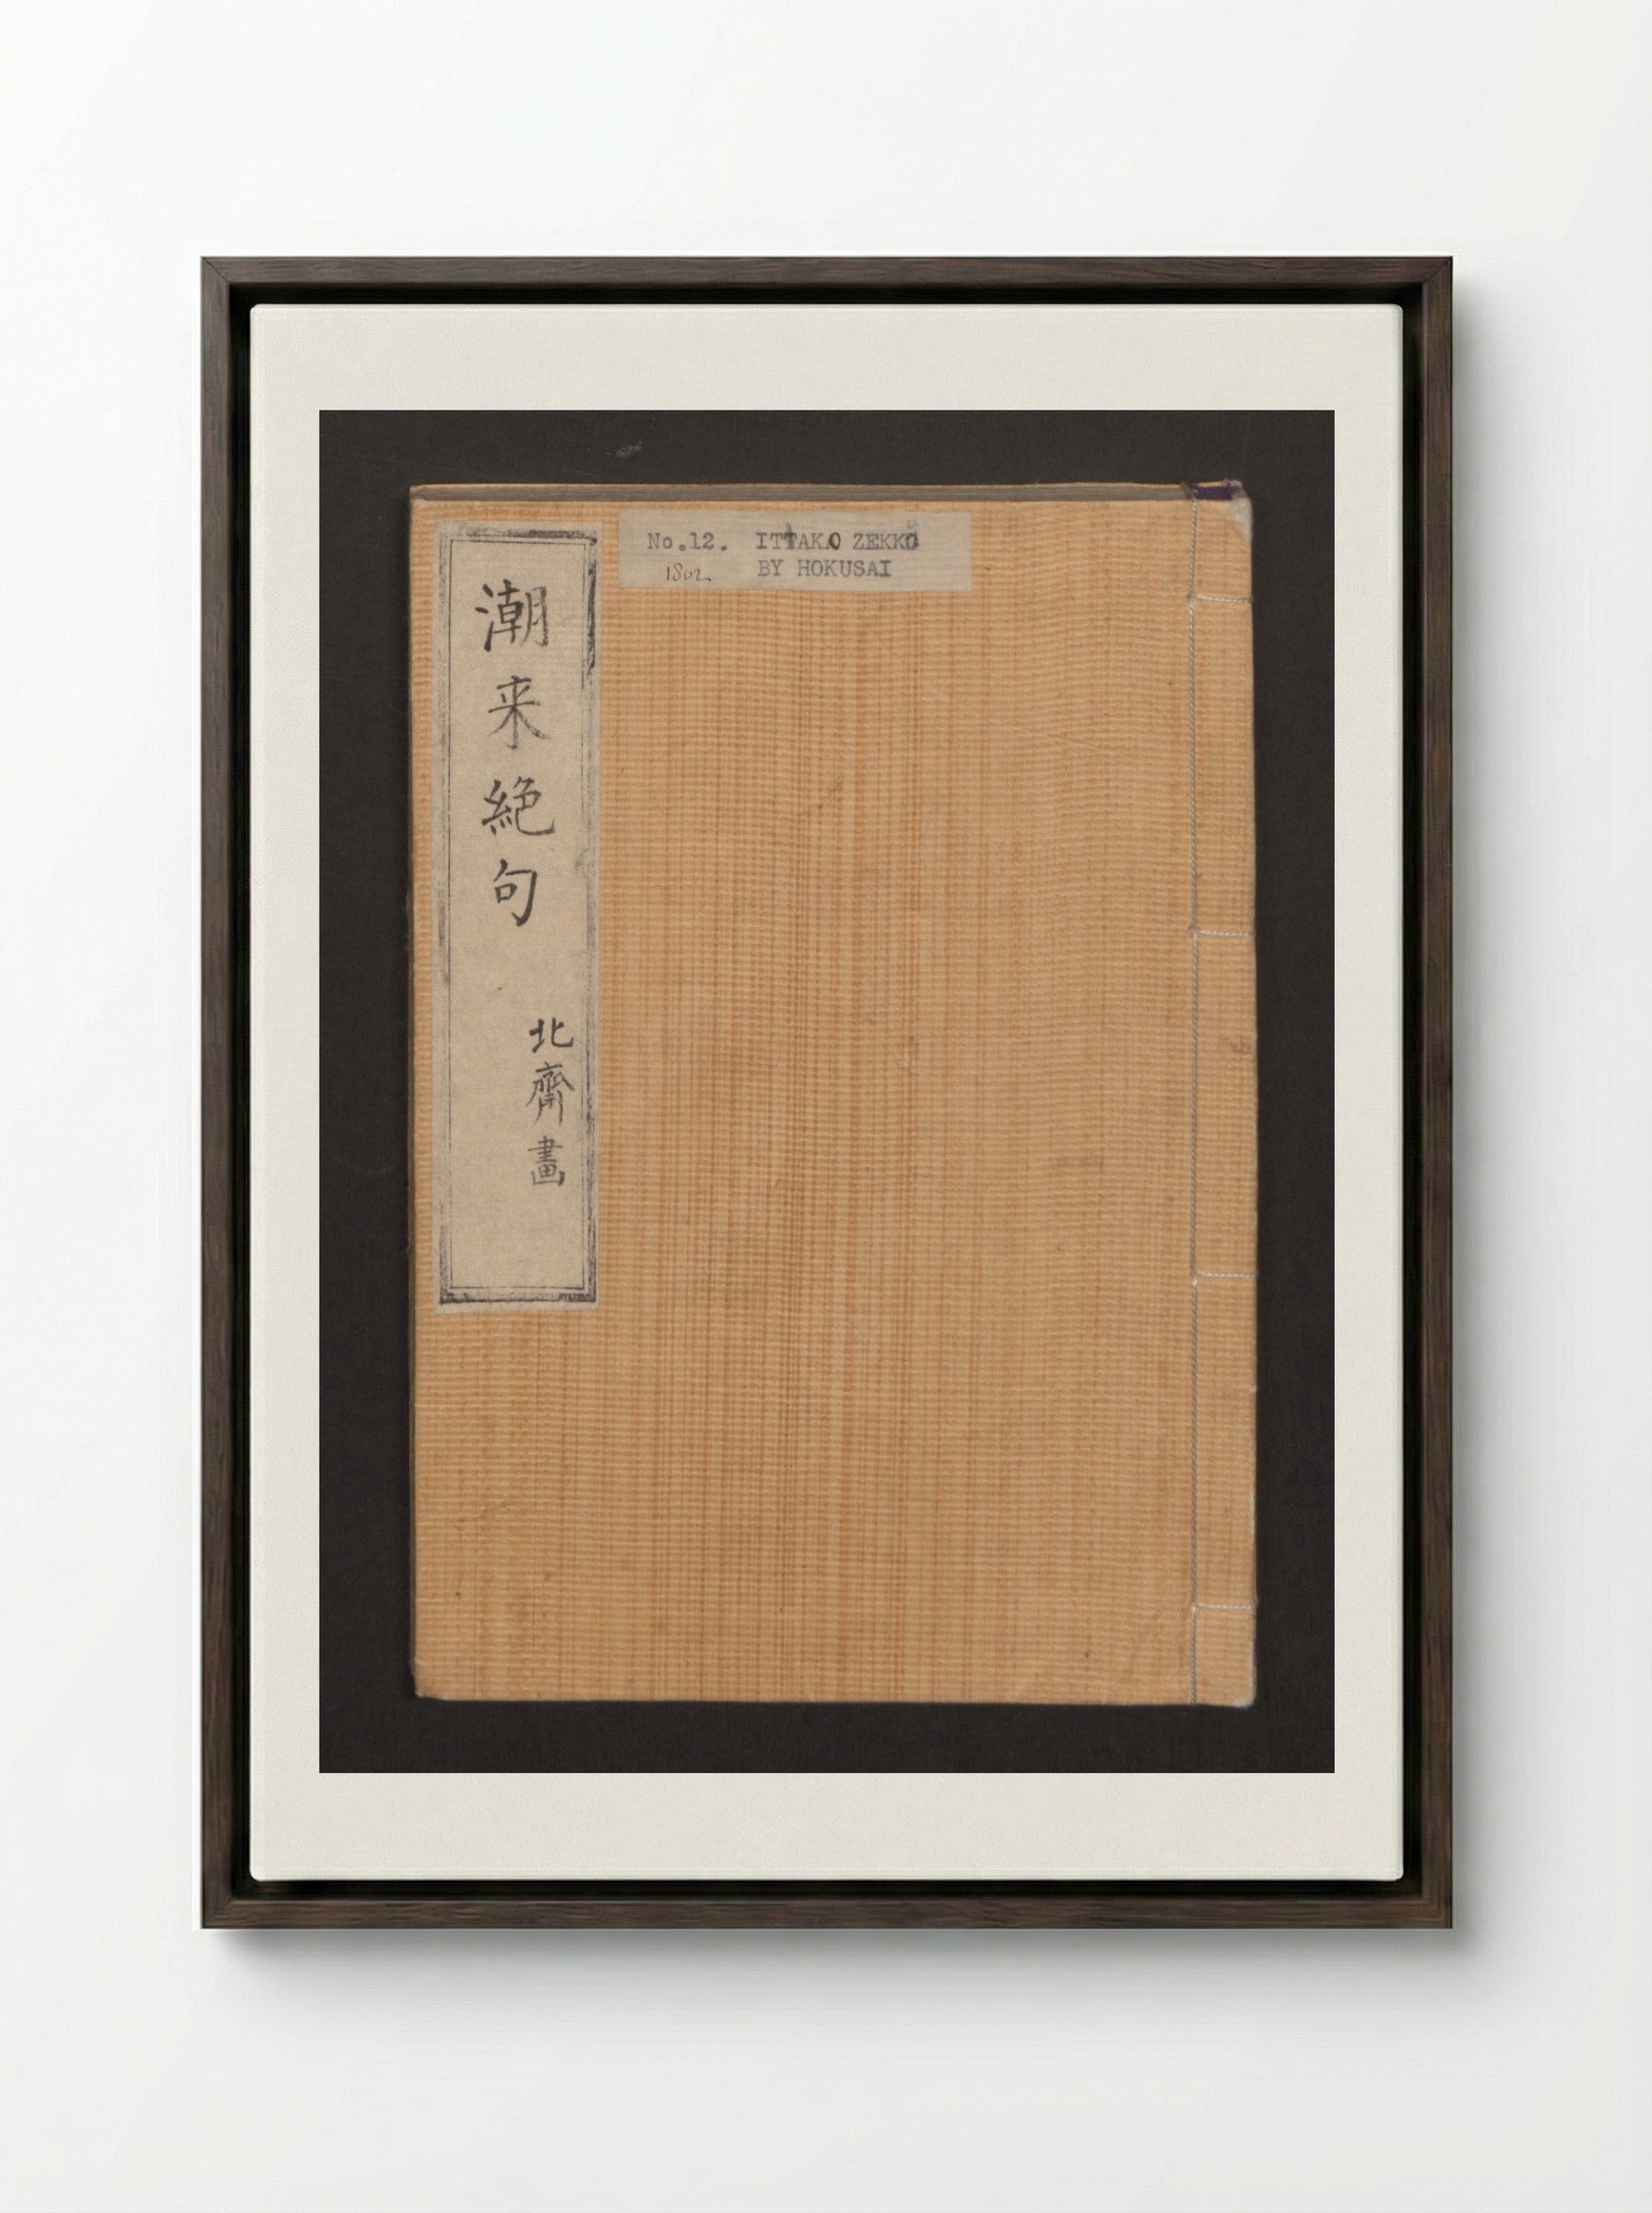 潮来絶句
北齋畫
No.12. ITTAKO ZEKKŬ
1802 BY HOKUSAI